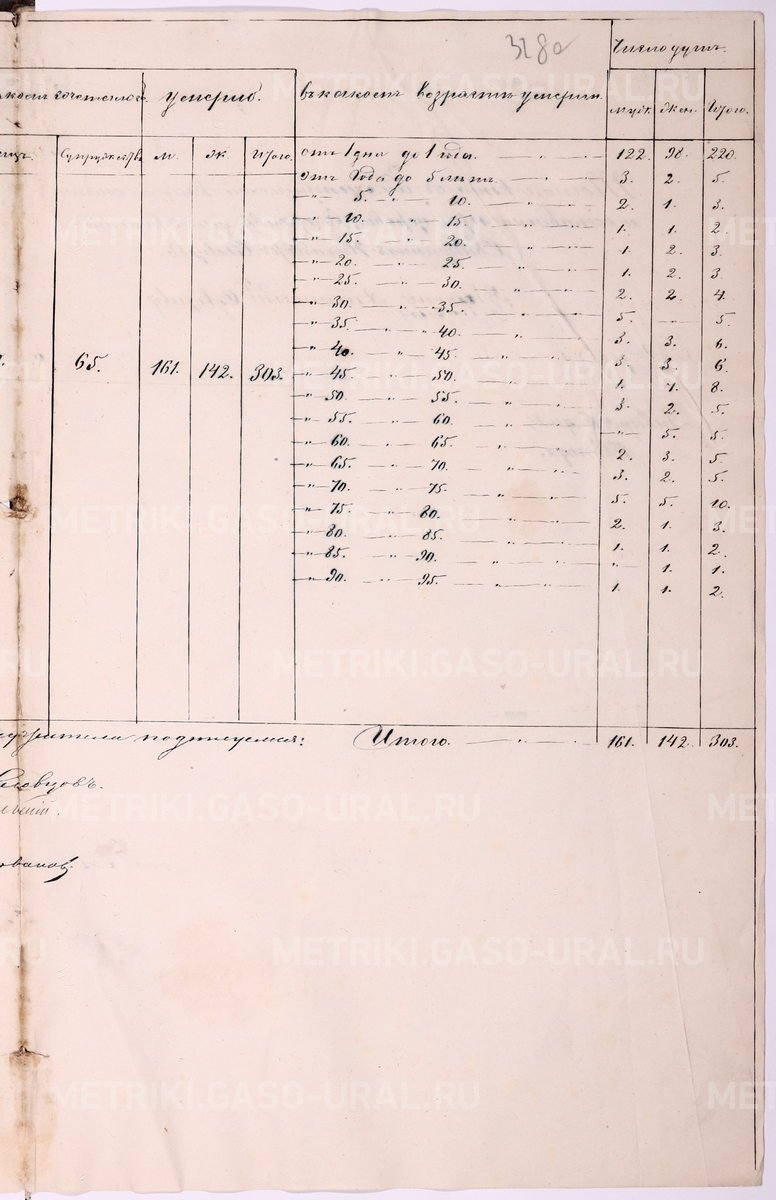 318о
Число душъ.
сочетелось умерло. въ какомъ возрасти умерли. муж. жен. Итого.
Супружествъ м. ж. Итого. отъ 1 дня до 1 года. — " — " — 122. 98. 220.
Отъ 1 года до 5 лѣтъ. — " — 3. 2. 5.
— " — 5. — " — 10. — " — 2. 1. 3.
— " — 10. — " — 15. — " — 1. 1. 2.
— " — 15. — " — 20. — " — 1. 2. 3.
— " — 20. — " — 25. — " — 1. 2. 3.
— " — 25. — " — 30. — " — 2. 2. 4.
— " — 30. — " — 35. — " — 5. — 5.
— " — 35. — " — 40. — " — 3. 3. 6.
— " — 40. — " — 45. — " — 3. 3. 6.
65. 161. 142. 303. — " — 45. — " — 50. — " — 1. 7. 8.
— " — 50. — " — 55. — " — 3. 2. 5.
— " — 55. — " — 60. — " — " 5. 5.
— " — 60. — " — 65. — " — 2. 3. 5.
— " — 65. — " — 70. — " — 3. 2. 5.
— " — 70. — " — 75. — " — 5. 5. 10.
— " — 75. — " — 80. — " — 2. 1. 3.
— " — 80. — " — 85. — " — 1. 1. 2.
— " — 85. — " — 90. — " — " 1. 1.
— " — 90. — " — 95. — " — 1. 1. 2.
подписуемся: Итого. — " — " — 161. 142. 303.
METRIKI.GASO-URAL.RU